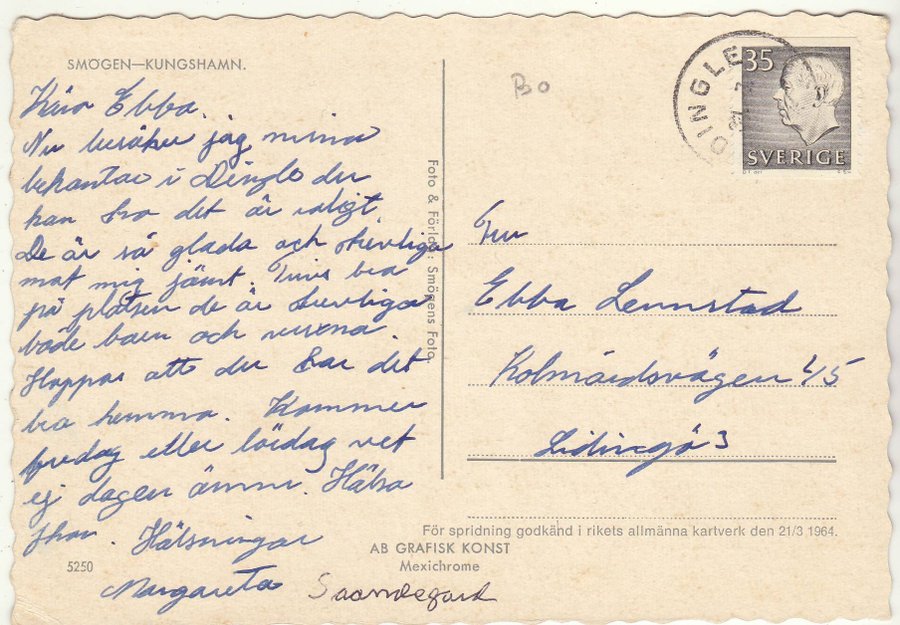 SMÖGEN—KUNGSHAMN.
Kära Ebba.
Nu besöker jag mina
bekantao i Dingle du
kan tro det är roligt.
De är så glada och trevliga
mot mig jämt. Trivs bra
på platsen de är trevliga
både barn och vuxna.
Hoppas att du har det
bra hemma. Kommer
fredag eller lördag vet
ej dagen ännu. Hälsa
Hälsningar
Margareta
5250
Foto & Förlag: Smögens Foto.
AB GRAFISK KONST
Mexichrome
Bo
DINGLE
35
SVERIGE
Fru
Ebba Lennstad
Kolmårdsvägen 45
Lidingö 3
För spridning godkänd i rikets allmänna kartverk den 21/3 1964.